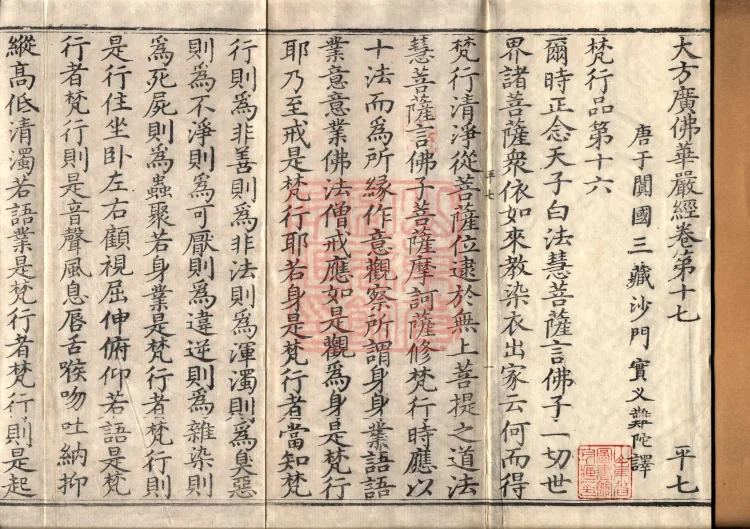 大方廣佛華嚴經卷第十七 平七
唐于闐國三藏沙門實叉難陀譯
梵行品第十六
爾時正念天子白法慧菩薩言佛子一切世
界諸菩薩衆依如來教染衣出家云何而得
梵行清淨從菩薩位逮於無上菩提之道法
平七
慧菩薩言佛子菩薩摩訶薩修梵行時應以
十法而爲所緣作意觀察所謂身身業語語
業意意業佛法僧戒應如是觀爲身是梵行
耶乃至戒是梵行耶若身是梵行者當知梵
行則爲非善則爲非法則爲渾濁則爲臭惡
則爲不淨則爲可厭則爲違逆則爲雜染則
爲死屍則爲蟲聚若身業是梵行者梵行則
是行住坐卧左右顧視屈伸俯仰若語是梵
行者梵行則是音聲風息唇舌喉吻吐納抑
縱高低清濁若語業是梵行者梵行則是起